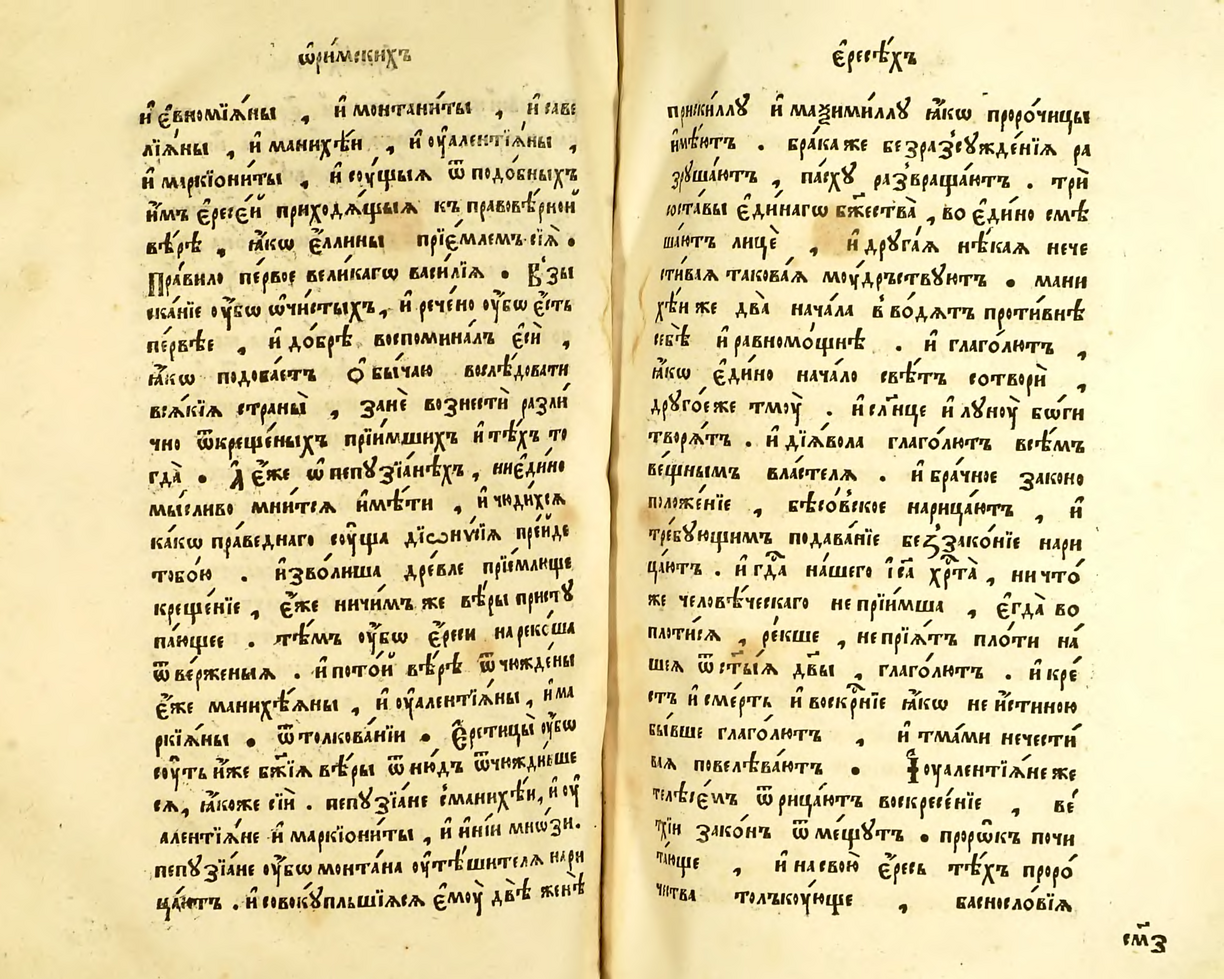 ѡ҆ри́мскихъ
и҆ є҆вномїѧ́ны , и҆ монтани́ты , и҆ саве
лїѧ́ны , и҆ манихѣ́и , и҆ оу҆алентїѧ́ны ,
и҆ маркїони́ты , и҆ соу́щыѧ ѿ подо́бныхъ
и҆́мъ є҆ресе́й приходѧ́щыѧ къ правовѣ́рной
вѣ́рѣ , ꙗ҆́кѡ є҆́ллины прїе́млемъ сїѧ̀ .
Пра́вило пе́рвое вели́кагѡ васи́лїѧ . Взы
ска́нїе оу҆́бѡ ѡ҆чи́стыхъ , и҆ рече́но оу҆́бѡ є҆́сть
пе́рвѣе , и҆ до́брѣ воспомина́лъ є҆сѝ ,
ꙗ҆́кѡ подоба́етъ Ѻ҆бы́чаю воглѣ́довати
всѧ́кїѧ страны̀ , занѐ вознестѝ разли
чно ѿкреще́ныхъ прїи́мших и҆ тѣ́хъ то
гда̀ . А҆ є҆́же ѡ҆ пепꙋзїа́нѣхъ , ниеди́но
мы́сливо мни́тсѧ и҆мѣ́ти , и҆ чюди́хсѧ
ка́кѡ пра́веднаго соу́ща дїѡни́сїѧ пре́йде
тобо́ю . и҆зво́лиша дре́вле прїе́млище
креще́нїе , є҆́же ничи́мъ же вѣ́ры пристꙋ
па́ющее . тѣ́мъ оу҆́бѡ є҆́реси нареко́ша
ѿве́рженыѧ . и҆ пото́й вѣ́рѣ ѿчюжде́ны
є҆́же манихѣ́ѧны , и҆ оу҆алентїѧ́ны , и҆ ма
ркїѧ́ны . ѿ толкова́нїи . Є҆рети́цы оу҆́бѡ
соу́ть и҆́же бж҃їѧ вѣ́ры ѿню́дъ ѿчюжди́вше
сѧ , ꙗ҆́коже сі́и . пепꙋзїа́не с҆манихѣ́и , и҆ оу҆
алентїѧ́не и҆ маркїони́ты , и҆ и҆ні́и мно́зи .
пепꙋзїа́не оу҆́бѡ монта́на оу҆тѣ́шителѧ нари
ца́ютъ . и҆ совокꙋпльшїѧсѧ є҆моу̀ двѣ̀ женѣ̀
є҆́ресѣхъ
приски́ллꙋ и҆ маѯими́ллꙋ ꙗ҆́кѡ проро́чицы
и҆мѣ́ютъ . бра́ка же безразсꙋжде́нїѧ ра
зрꙋша́ютъ , па́схꙋ развраща́ютъ . трѝ
соста́вы є҆ди́нагѡ бж҃ества̀ , во є҆ди́но смѣ
ша́ютъ лицѐ , и҆ дрꙋга́ѧ нѣ́каѧ нече
сти́ваѧ такова́ѧ моу́дрьствꙋютъ . мани
хѣ́и же два̀ нача́ла вво́дѧтъ проти́внѣ
себѣ̀ и҆ равномо́щнѣ . и҆ глаго́лютъ ,
ꙗ҆́кѡ є҆ди́но нача́ло свѣ́тъ сотворѝ ,
дрꙋго́е же тмоу̀ . и҆ сл҃нце и҆ лꙋноу̀ бѡ́ги
творѧ́тъ . и҆ дїѧ́вола глаго́лютъ всѣ́мъ
ве́щнымъ вла́стелѧ . и҆ бра́чное законо
положе́нїе , бѣсо́вское нарица́ютъ , и҆
тре́бꙋющимъ подава́нїе беззако́нїе нари
ца́ютъ . и҆ гд҃а на́шего і҆са҃ хр҃та̀ , ничто́
же человѣ́ческаго непрїи́мша , є҆гда̀ во
плоти́сѧ , ре́кше , непрїѧ́тъ пло́ти на́
шеѧ ѿ ст҃ы́ѧ дв҃ы , глаго́лютъ . и҆ кре́
стъ и҆ сме́рть и҆ воскр҃нїе ꙗ҆́кѡ не и҆́стиною
бы́вше глаго́лютъ , и҆ тма́ми нечести́
выѧ повелѣва́ютъ . І҆ оуалентїѧ́не же
телѣсе́мъ ѿрица́ютъ воскресе́нїе , ве́
тхїи зако́нъ ѿме́щꙋтъ . проро́къ почи
та́юще , и҆ на свою̀ є҆́ресь тѣ́хъ проро́
чества толъкоу́юще , баснослѡ́вїѧ
см҃з